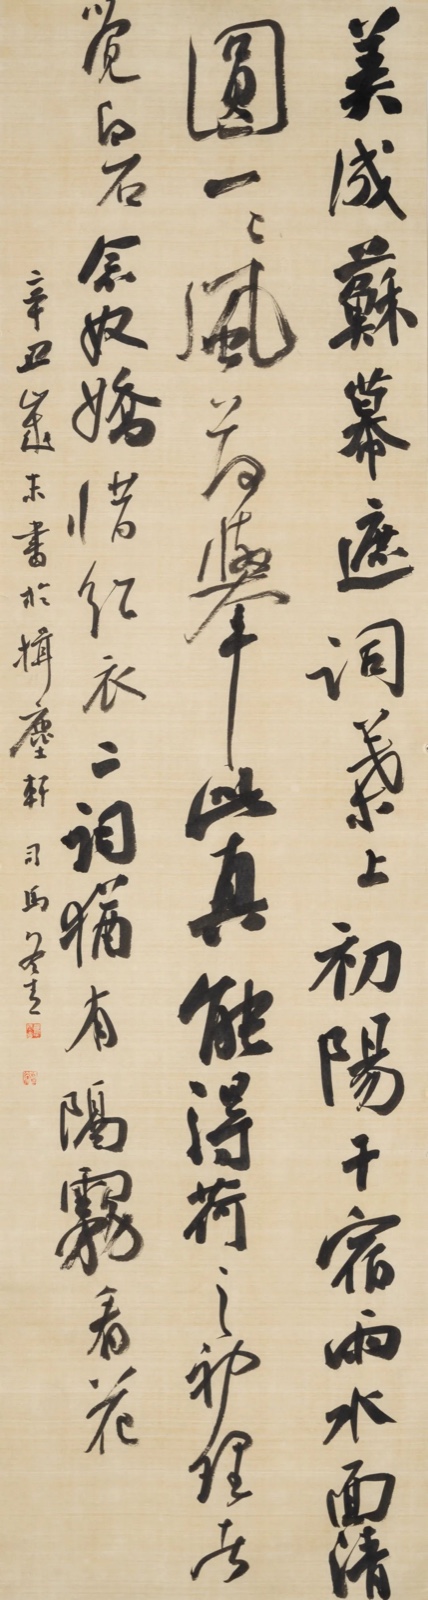 美成蘇幕遮詞葉上初陽干宿雨水面清
圓一一風荷舉此真能得荷之神理者
覺白石念奴嬌惜紅衣二詞猶有隔霧看花
辛丑歲末書於揖塵軒 司馬